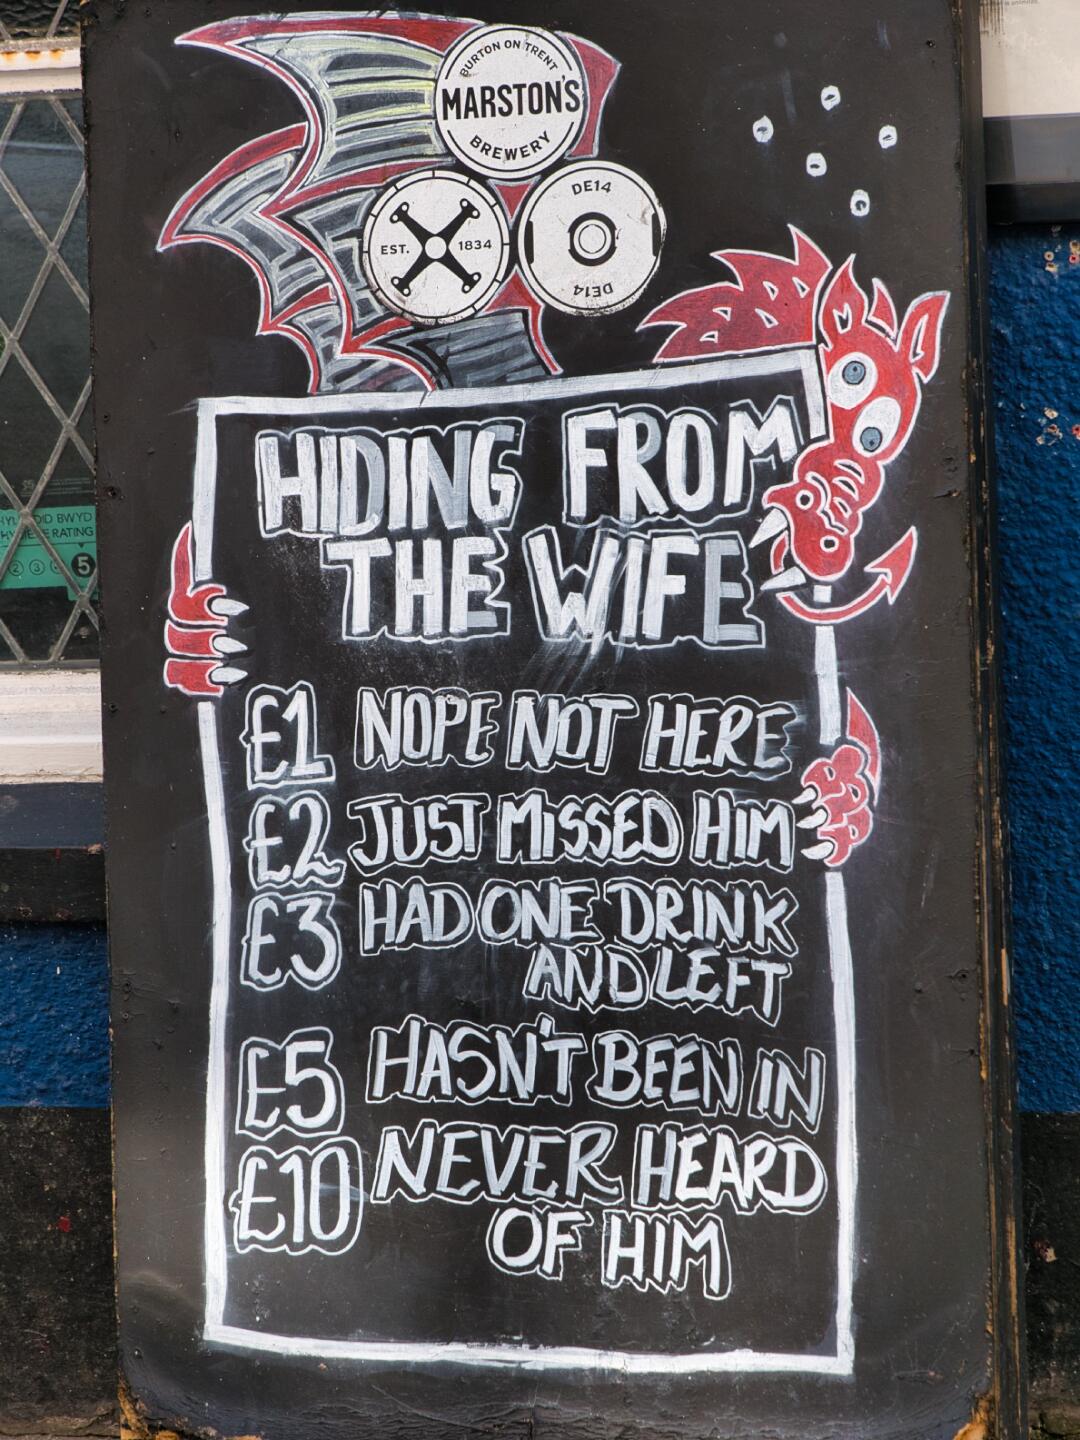 BURTON ON TRENT
MARSTON'S
BREWERY
EST. 1834
DE14
DE14
HIDING FROM
THE WIFE
£1 NOPE NOT HERE
£2 JUST MISSED HIM
£3 HAD ONE DRINK
AND LEFT
£5 HASN'T BEEN IN
£10 NEVER HEARD
OF HIM
BWYD
RATING
2 3 5